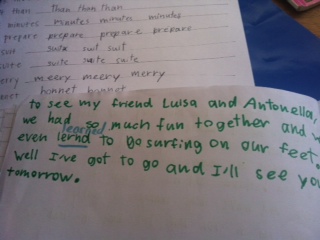 than than than than
minutes minutes minutes minutes
prepare prepare prepare prepare
suit suit suit
suite suite suite
meery meery merry
bonnet bonnet
to see my friend Luisa and Antonella,
we had so much fun together and
learned
even lernd to go surfing on our feet.
well I've got to go and I'll see you
tomorrow.